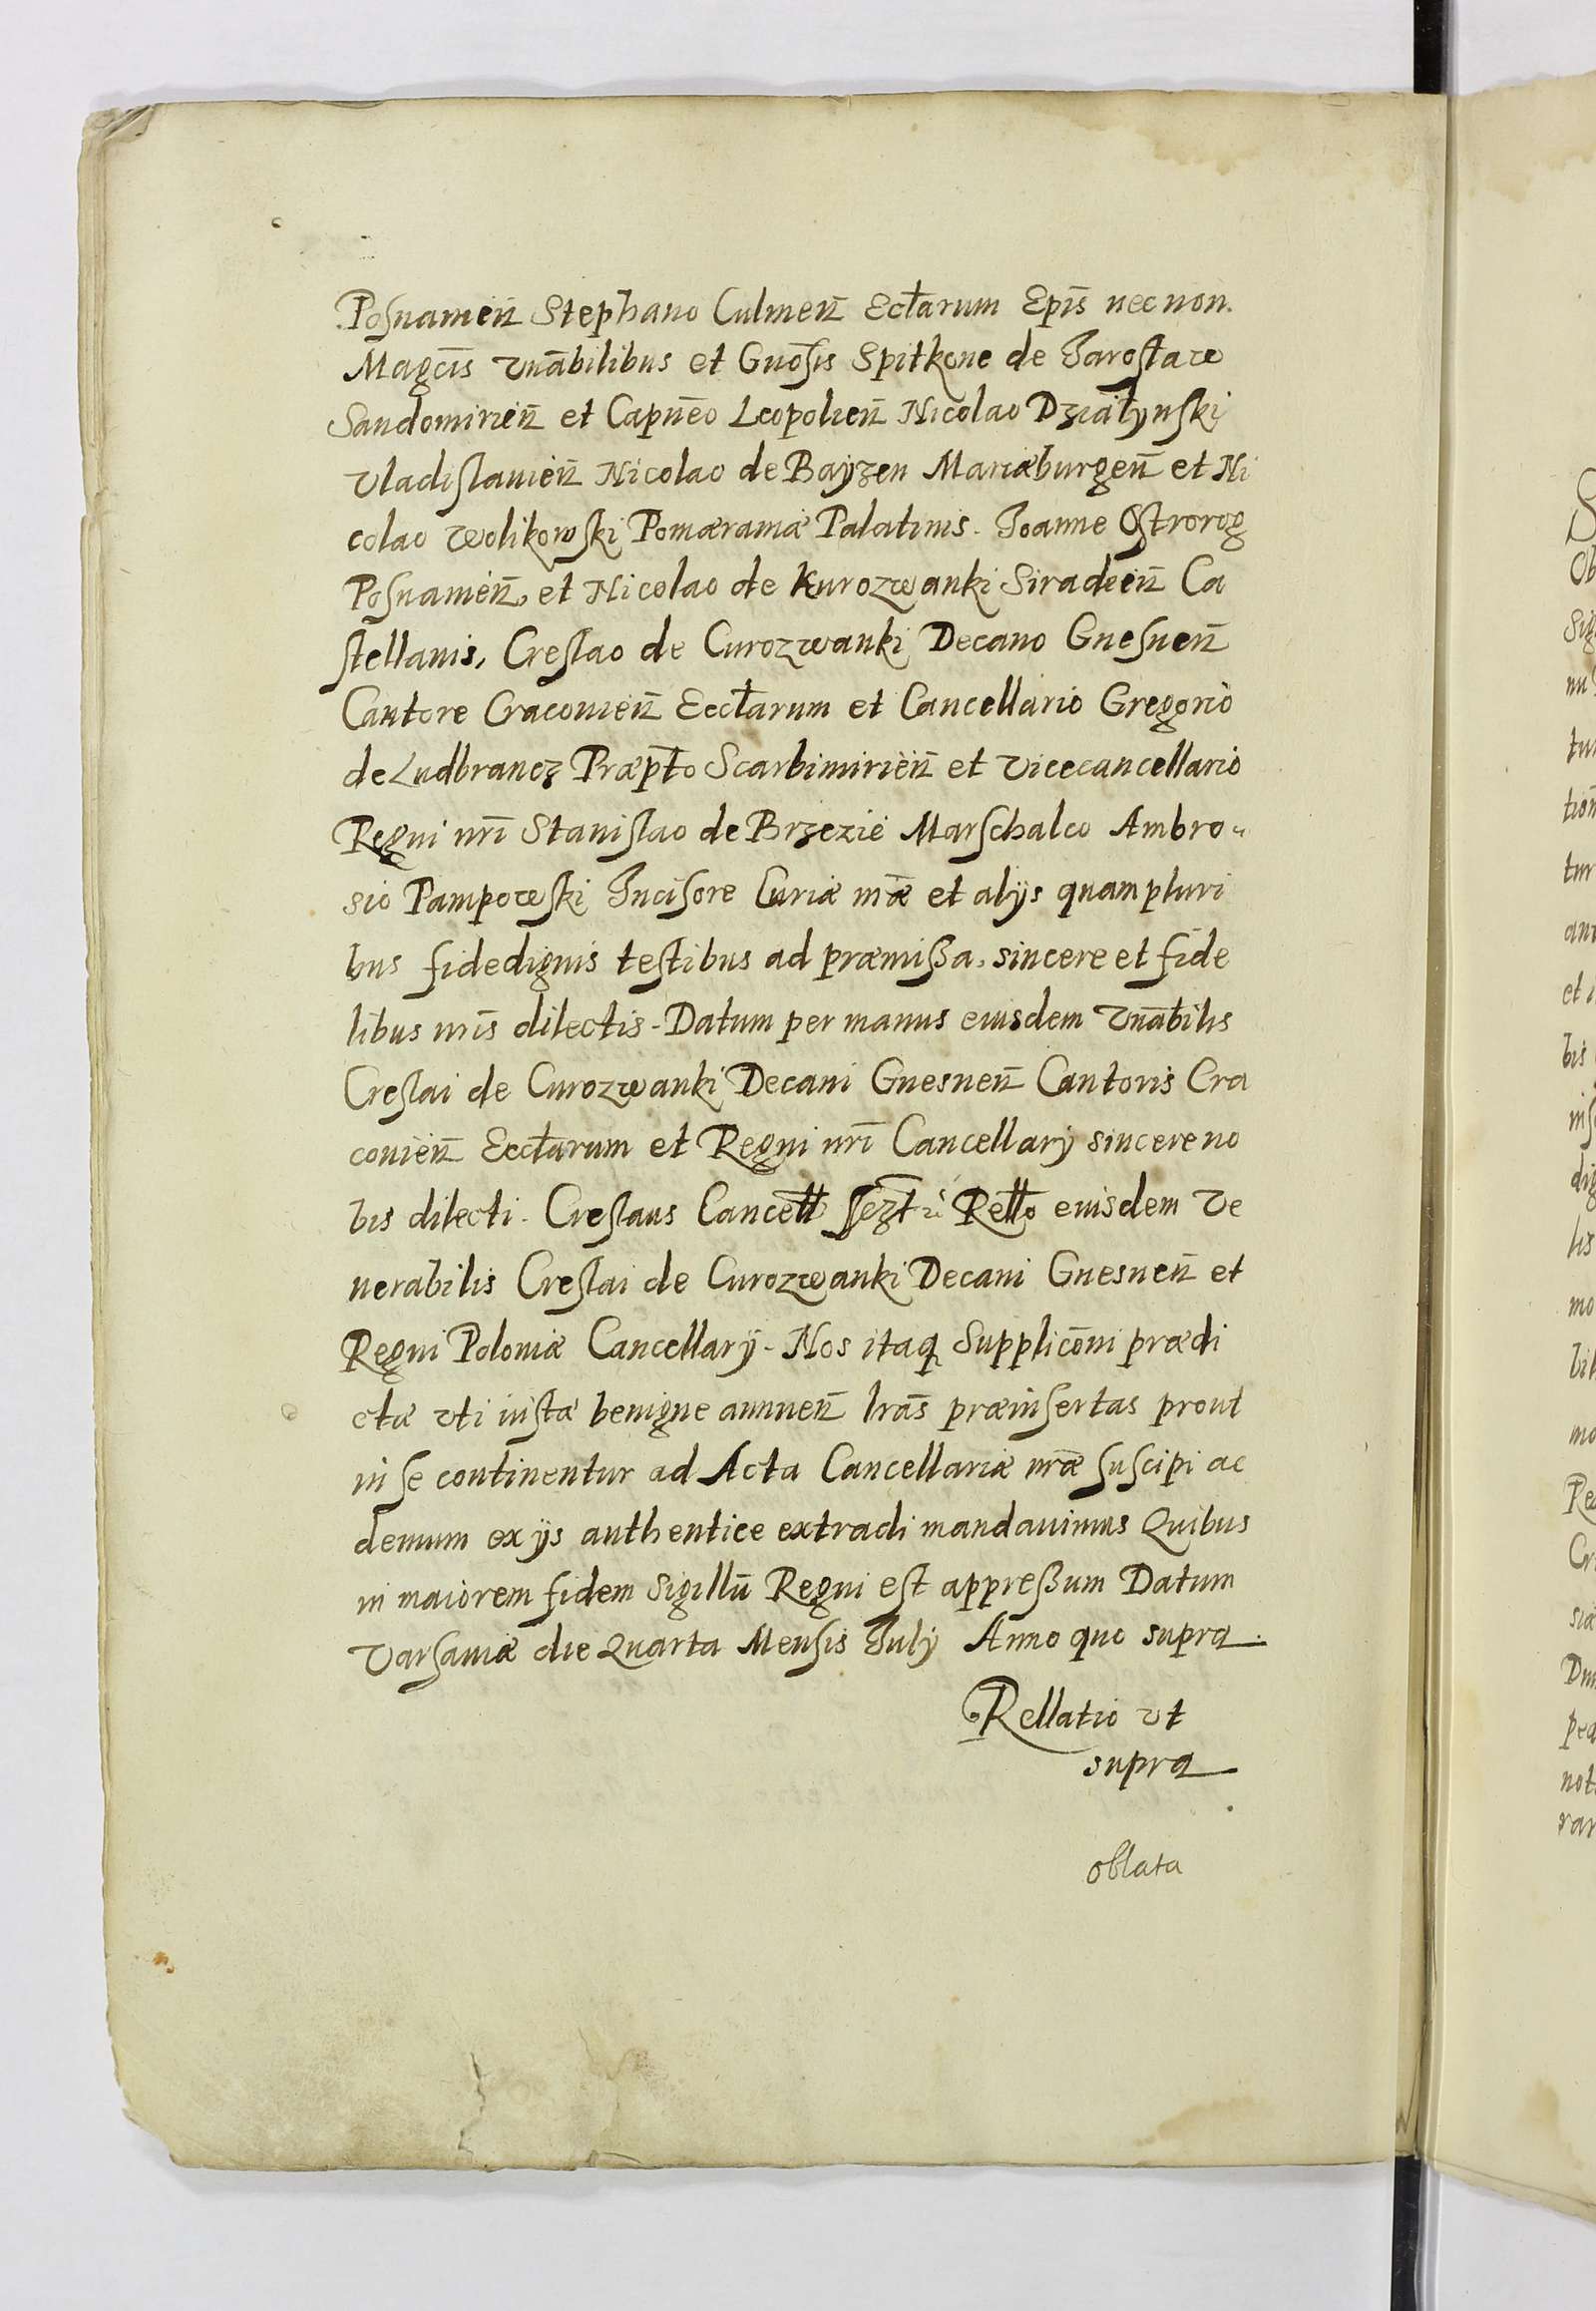 Posnamen̄ Stephano Culmen̄ Eccłarum Ep̄is necnon
Magc̄is Vn̄abilibus et Gnōsis Spitkone de Jarosław
Sandomirien̄ et Capn̄eo Leopolien̄ Nicolao Działynski
Vladislauien̄ Nicolao de Bayzen Mariæburgen̄ et Ni
colao Wolikowski Pomæraniæ Palatinis. Joanne Ostrorog
Posnanien̄, et Nicolao de Kurozwanki Siradien̄ Ca
stellanis, Creslao de Curozwanki Decano Gnesnen̄
Cantore Cracouien̄ Eccłarum et Cancellario Gregorio
de Ludbrancz Præpt̄o Scarbimirien̄ et Vicecancellario
Regni nr̄i Stanislao de Brzezie Marschalco Ambro-
sio Pampowski Incisore Curiæ nr̄æ et alijs quampluri
bus fidedignis testibus ad præmissa, sincere et fide
libus nr̄is dilectis. Datum per manus eiusdem Vn̄abilis
Creslai de Curozwanki Decani Gnesnen̄ Cantoris Cra
couien̄ Eccłarum et Regni nr̄i Cancellarij sincere no
bis dilecti. Creslaus Cancełł Rełło eiusdem Ve
nerabilis Creslai de Curozwanki Decani Gnesnen̄ et
Regni Poloniæ Cancellarij. Nos itaq Supplicōni prædi
ctæ vti iustæ benigne annuen̄ lr̄as præinsertas prout
in se continentur ad Acta Cancellariæ nr̄æ suscipi ac
demum ex ijs authentice extradi mandauimus Quibus
in maiorem fidem Sigillū Regni est appressum Datum
Varsauiæ die Quarta Mensis Julij Anno quo supra.
Rellatio vt
supra
oblata